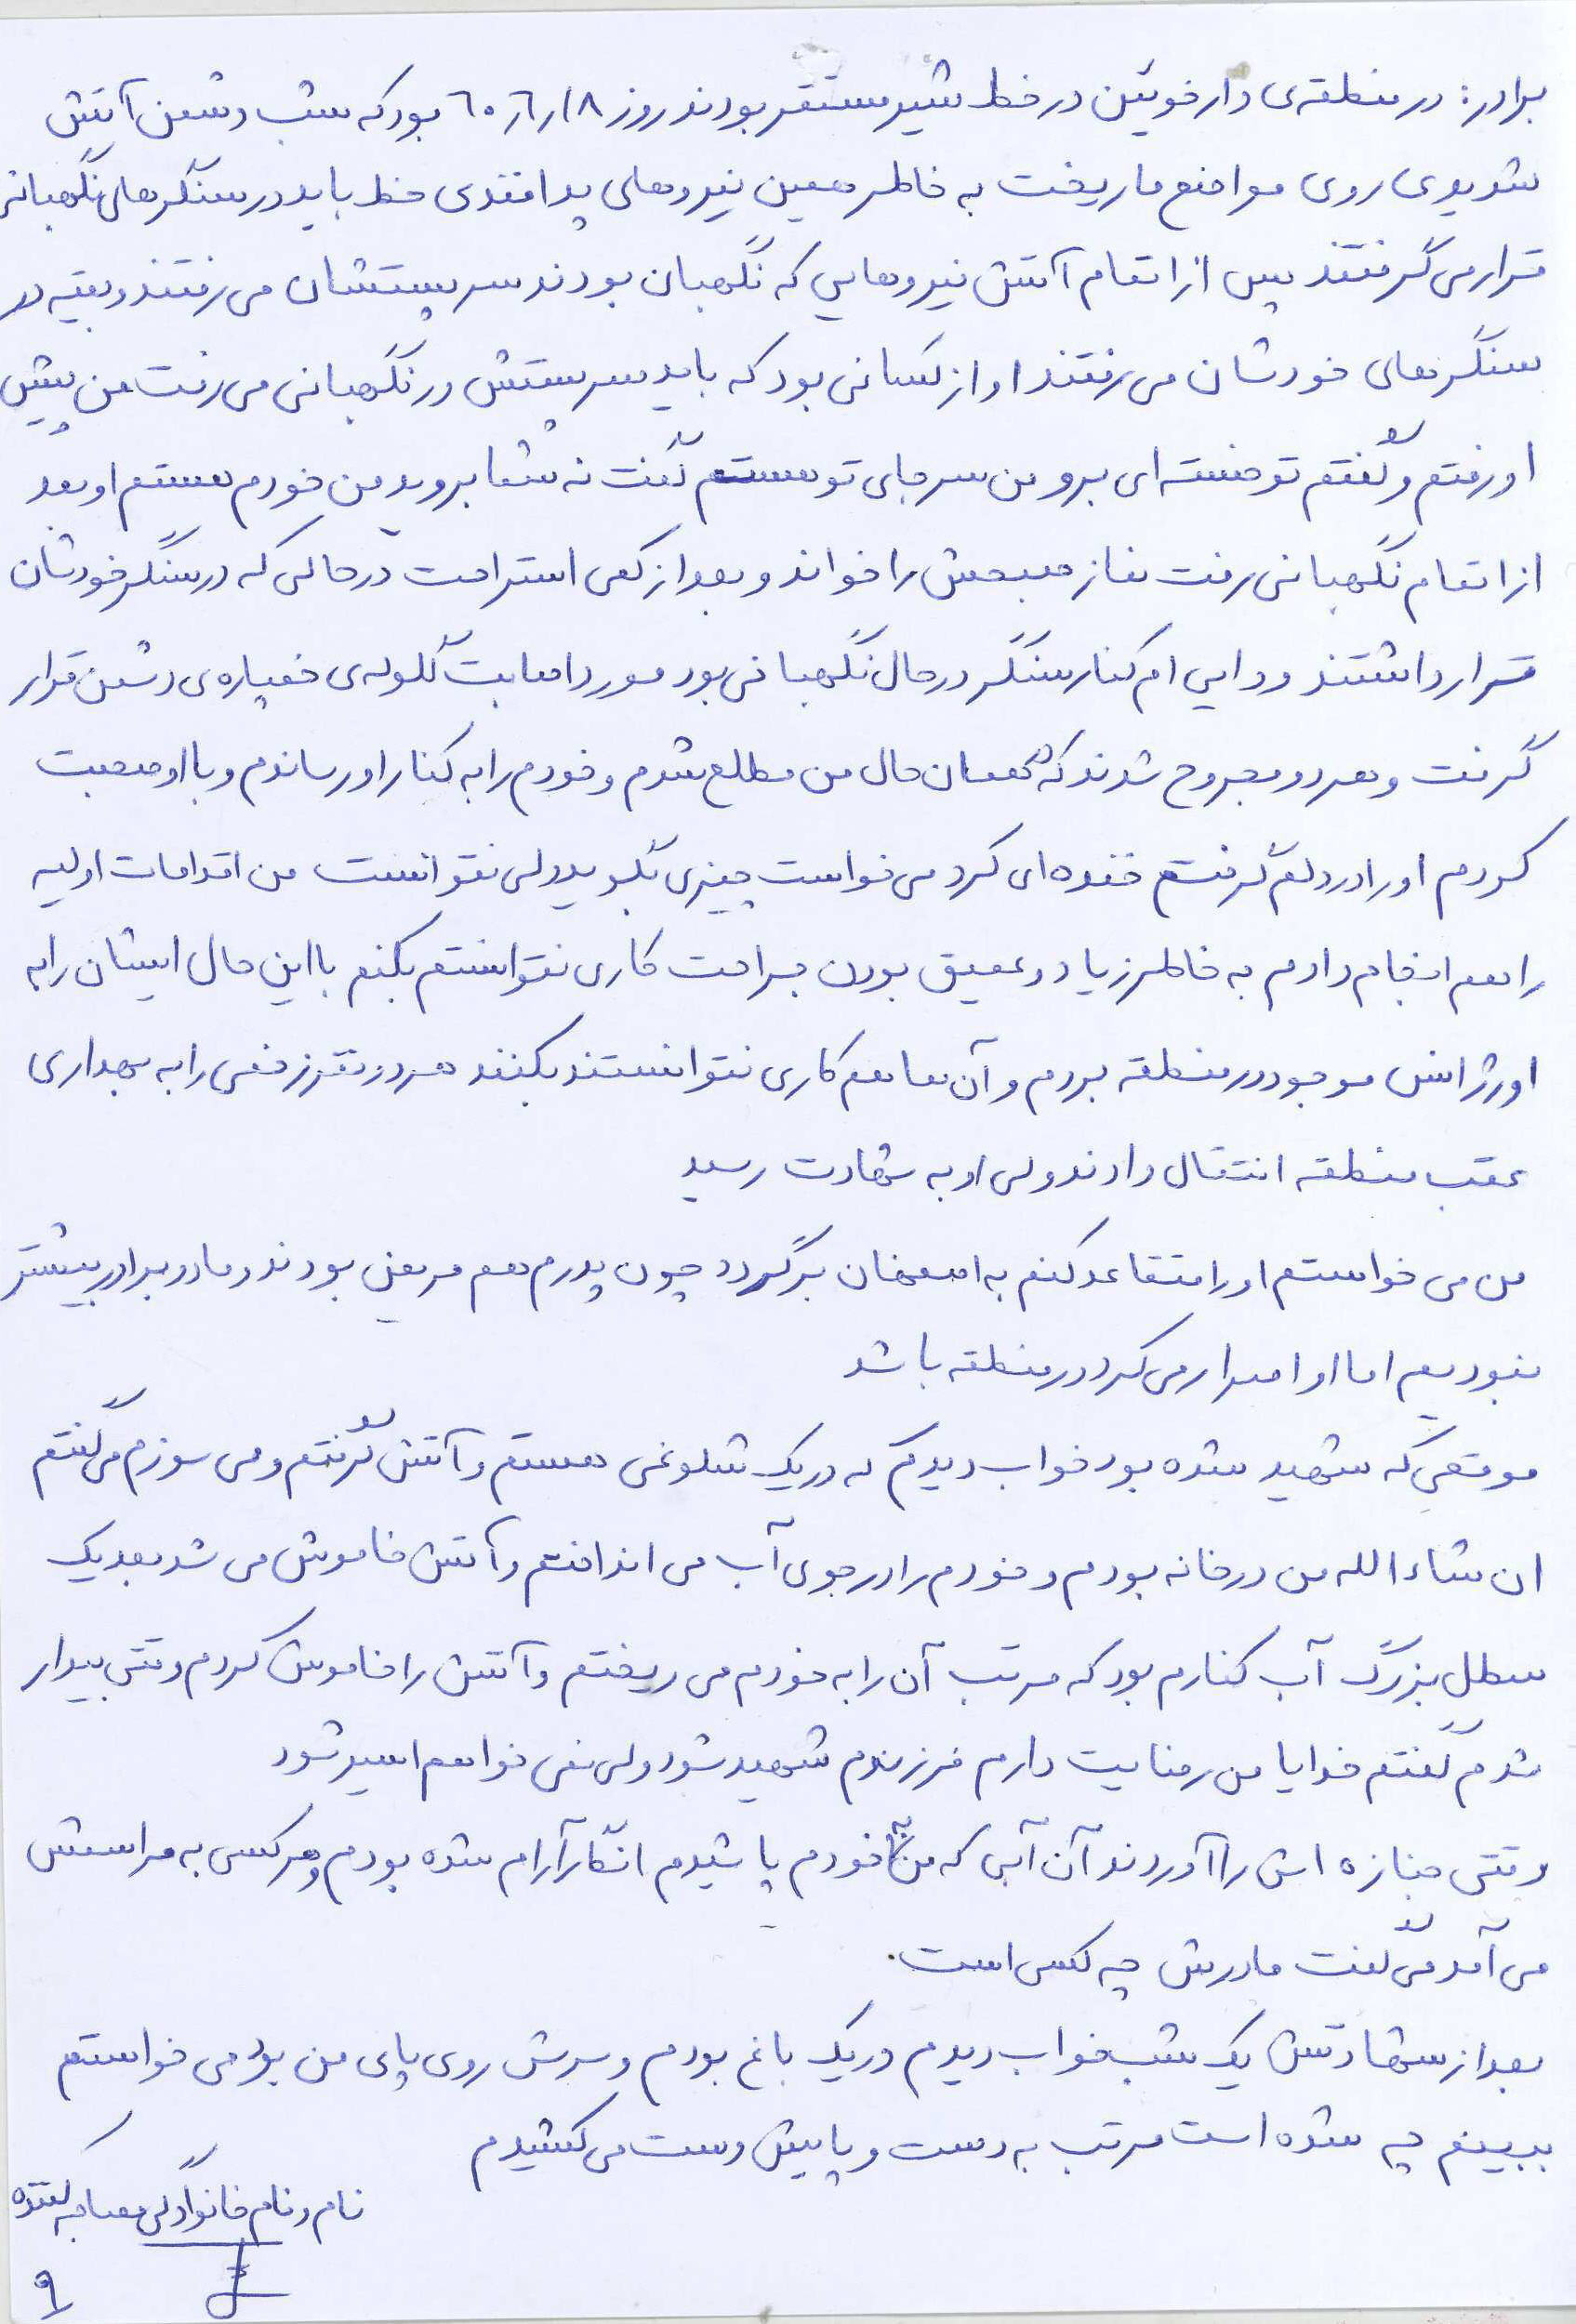 برادر: در منطقه‌ی دارخوئین در خط شیر مستقر بودند روز ۶۰٫۶٫۱۸ بود که شب دشمن آتش
شدیدی روی مواضع ما ریخت به خاطر همین نیروهای پدافندی خط باید در سنگرهای نگهبانی
قرار می گرفتند پس از اتمام آتش نیروهایی که نگهبان بودند سر پستشان می رفتند و بقیه در
سنگرهای خودشان می رفتند او از کسانی بود که باید سر پستش در نگهبانی می رفت من پیش
او رفتم و گفتم تو خسته ای برو من سر جای تو هستم گفت نه شما بروید من خودم هستم او بعد
از اتمام نگهبانی رفت نماز صبحش را خواند و بعد از کمی استراحت در حالی که در سنگر خودشان
قرار داشتند و دایی ام کنار سنگر در حال نگهبانی بود مورد اصابت گلوله‌ی خمپاره‌ی دشمن قرار
گرفت و هر دو مجروح شدند که همان حال من مطلع شدم و خودم را به کنار او رساندم و با او صحبت
کردم او را در بغلم گرفتم خنده ای کرد می خواست چیزی بگوید ولی نتوانست من اقدامات اولیه
را هم انجام دادم به خاطر زیاد و عمیق بودن جراحت کاری نتوانستم بکنم با این حال ایشان را به
اورژانس موجود در منطقه بردم و آن ها هم کاری نتوانستند بکنند هر دو نفر زخمی را به بهداری
عقب منطقه انتقال دادند ولی او به شهادت رسید
من می خواستم او را متقاعد کنم به اصفهان برگردد چون پدرم هم مریض بودند و ما دو برادر بیشتر
نبودیم اما او اصرار می کرد در منطقه باشد
موقعی که شهید شده بود خواب دیدم که در یک شلوغی هستم و آتش گرفتم و می سوزم می گفتم
ان شاء الله من در خانه بودم و خودم را در جوی آب می انداختم و آتش خاموش می شد بعد یک
سطل بزرگ آب کنارم بود که مرتب آن را به خودم می ریختم و آتش را خاموش کردم وقتی بیدار
شدم گفتم خدایا من رضایت دارم فرزندم شهید شود ولی نمی خواهم اسیر شود
وقتی جنازه اش را آوردند آن آبی که من به خودم پاشیدم انگار آرام شده بودم و هر کسی به مراسمش
می آمد می گفت مادرش چه کسی است.
بعد از شهادتش یک شب خواب دیدم در یک باغ بودم و سرش روی پای من بود می خواستم
ببینم چه شده است مرتب به دست و پایش دست می کشیدم
نام و نام خانوادگی مصاحبه کننده
۹